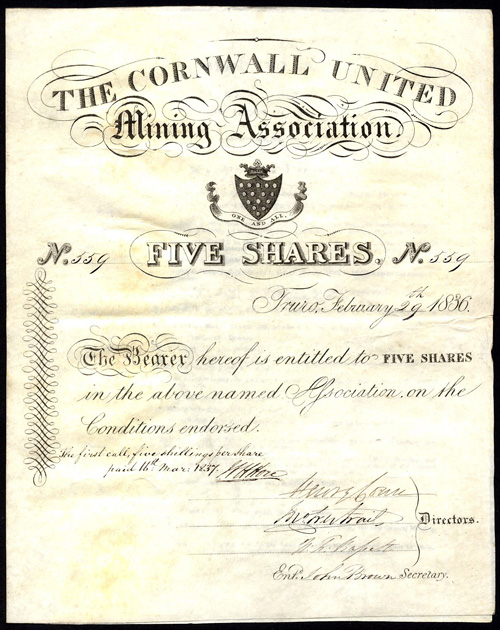 THE CORNWALL UNITED
Mining Association.
ONE AND ALL.
No. 559 FIVE SHARES, No. 559
Truro, February 29th 1836.
The Bearer hereof is entitled to FIVE SHARES
in the above named Association, on the
Conditions endorsed.
The first call, five shillings per share
paid 16th Mar: 1837.
Directors.
Entd. John Brown Secretary.